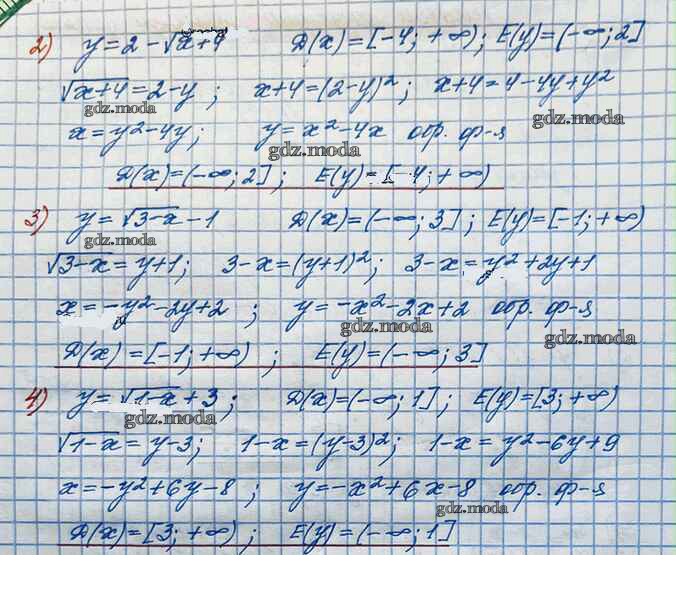 2) y = 2 - √x+4 D(x) = [-4; +∞); E(y) = (-∞; 2]
√x+4 = 2-y; x+4 = (2-y)²; x+4 = 4-4y+y²
gdz.moda gdz.moda
x = y²-4y; y = x²-4x обр. ф-я
gdz.moda
D(x) = (-∞; 2]; E(y) = [-4; +∞)
3) y = √3-x - 1 D(x) = (-∞; 3]; E(y) = [-1; +∞)
gdz.moda
√3-x = y+1; 3-x = (y+1)²; 3-x = y²+2y+1
x = -y²-2y+2; y = -x²-2x+2 обр. ф-я
gdz.moda gdz.moda
D(x) = [-1; +∞); E(y) = (-∞; 3]
4) y = √1-x + 3; D(x) = (-∞; 1]; E(y) = [3; +∞)
gdz.moda
√1-x = y-3; 1-x = (y-3)²; 1-x = y²-6y+9
x = -y²+6y-8; y = -x²+6x-8 обр. ф-я
gdz.moda
D(x) = [3; +∞); E(y) = (-∞; 1]